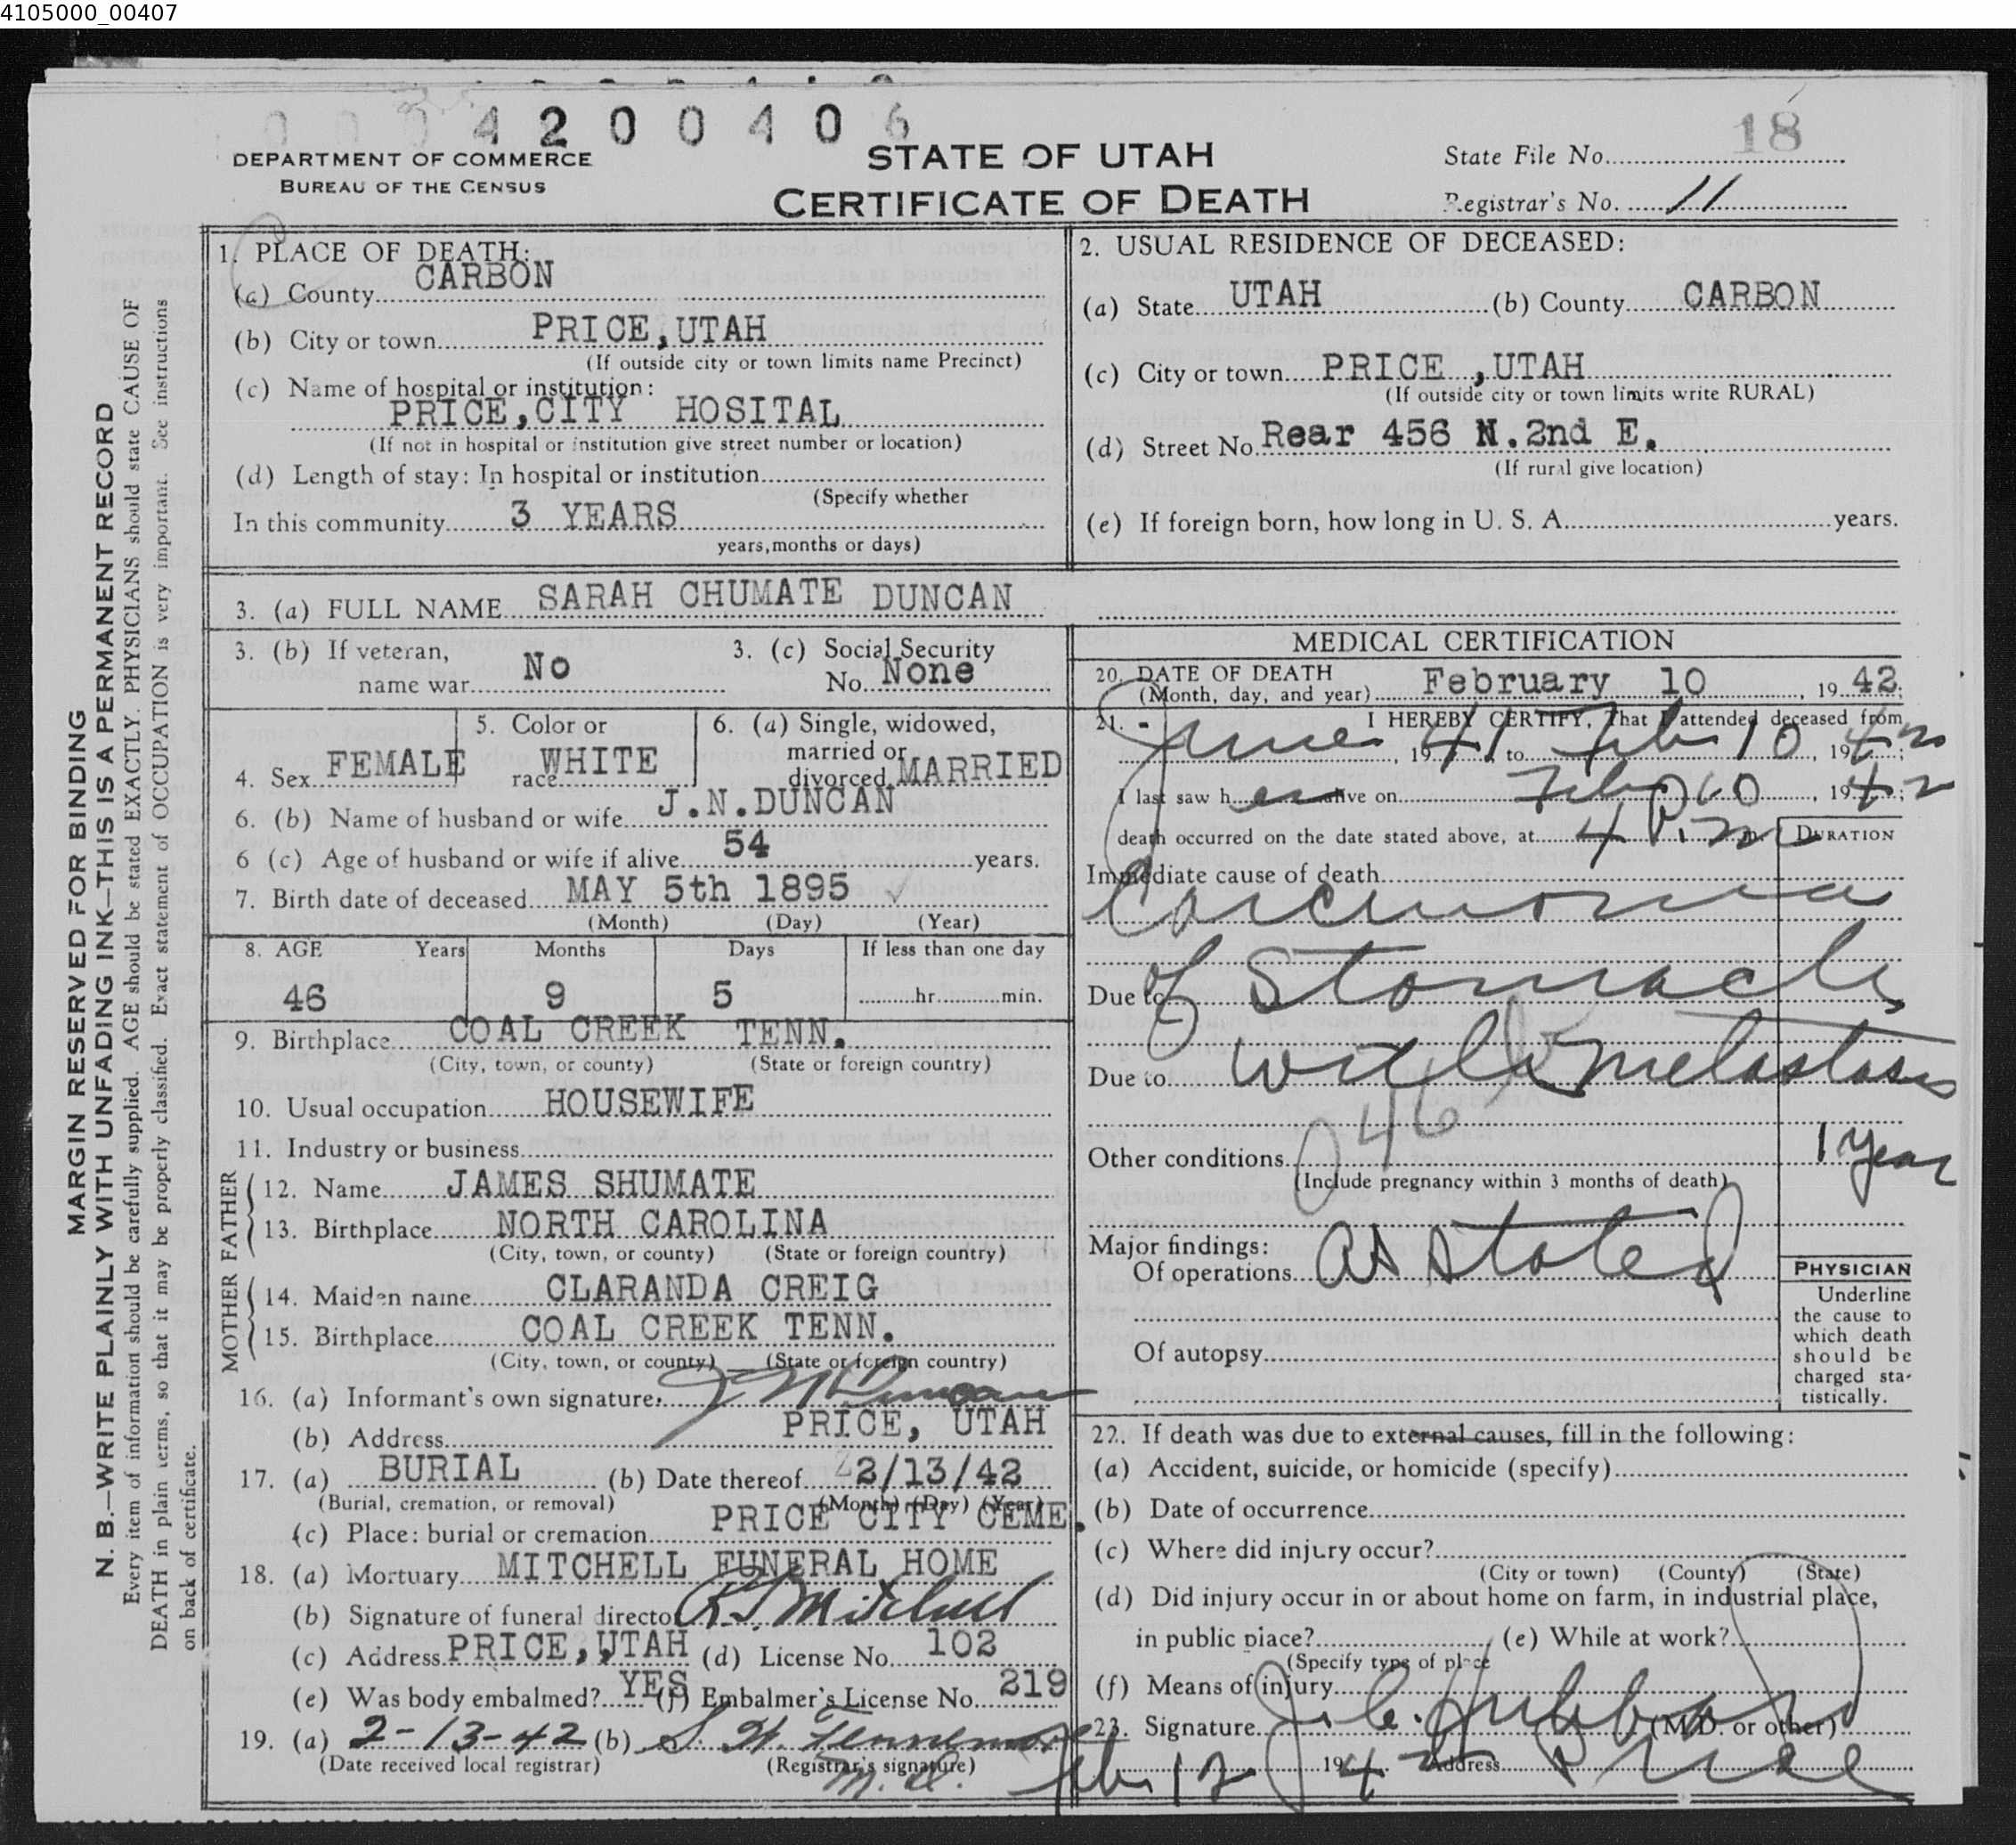 4105000_00407
0004200406
18
DEPARTMENT OF COMMERCE
BUREAU OF THE CENSUS
STATE OF UTAH
CERTIFICATE OF DEATH
State File No.
Registrar's No. 11
MARGIN RESERVED FOR BINDING
N. B.—WRITE PLAINLY WITH UNFADING INK—THIS IS A PERMANENT RECORD
Every item of information should be carefully supplied. AGE should be stated EXACTLY. PHYSICIANS should state CAUSE OF
DEATH in plain terms, so that it may be properly classified. Exact statement of OCCUPATION is very important. See instructions
on back of certificate.
1. PLACE OF DEATH:
(a) County CARBON
(b) City or town PRICE, UTAH
(If outside city or town limits name Precinct)
(c) Name of hospital or institution:
PRICE, CITY HOSITAL
(If not in hospital or institution give street number or location)
(d) Length of stay: In hospital or institution
(Specify whether
In this community 3 YEARS
years, months or days)
2. USUAL RESIDENCE OF DECEASED:
(a) State UTAH (b) County CARBON
(c) City or town PRICE ,UTAH
(If outside city or town limits write RURAL)
(d) Street No. Rear 456 N. 2nd E.
(If rural give location)
(e) If foreign born, how long in U. S. A. years.
3. (a) FULL NAME SARAH CHUMATE DUNCAN
3. (b) If veteran, name war No
3. (c) Social Security No. None
4. Sex FEMALE
5. Color or race WHITE
6. (a) Single, widowed, married or divorced MARRIED
6. (b) Name of husband or wife J.N.DUNCAN
6 (c) Age of husband or wife if alive 54 years.
7. Birth date of deceased MAY 5th 1895
(Month) (Day) (Year)
8. AGE Years Months Days If less than one day
46 9 5 hr. min.
9. Birthplace COAL CREEK TENN.
(City, town, or county) (State or foreign country)
10. Usual occupation HOUSEWIFE
11. Industry or business
FATHER
12. Name JAMES SHUMATE
13. Birthplace NORTH CAROLINA
(City, town, or county) (State or foreign country)
MOTHER
14. Maiden name CLARANDA CREIG
15. Birthplace COAL CREEK TENN.
(City, town, or county) (State or foreign country)
16. (a) Informant's own signature J N Duncan
(b) Address PRICE, UTAH
17. (a) BURIAL (b) Date thereof 2/13/42
(Burial, cremation, or removal) (Month) (Day) (Year)
(c) Place: burial or cremation PRICE CITY CEME.
18. (a) Mortuary MITCHELL FUNERAL HOME
(b) Signature of funeral director Mitchell
(c) Address PRICE, UTAH (d) License No. 102
(e) Was body embalmed? YES (f) Embalmer's License No. 219
19. (a) 2-13-42 (b)
(Date received local registrar) (Registrar's signature)
M. D.
MEDICAL CERTIFICATION
20. DATE OF DEATH
(Month, day, and year) February 10, 1942;
21. I HEREBY CERTIFY, That I attended deceased from
June, 1941 to Feb 10, 1942;
I last saw her alive on Feb 10, 1942;
death occurred on the date stated above, at 4 P. m.
DURATION
Immediate cause of death
Carcinoma
Due to of Stomach
Due to with metastasis
46
Other conditions
(Include pregnancy within 3 months of death)
1 year
Major findings:
Of operations As stated
Of autopsy
PHYSICIAN
Underline
the cause to
which death
should be
charged sta-
tistically.
22. If death was due to external causes, fill in the following:
(a) Accident, suicide, or homicide (specify)
(b) Date of occurrence
(c) Where did injury occur?
(City or town) (County) (State)
(d) Did injury occur in or about home on farm, in industrial place,
in public place? (e) While at work?
(Specify type of place
(f) Means of injury
23. Signature J. C. Hubbard (M.D. or other)
Feb 12 1942 Address Price